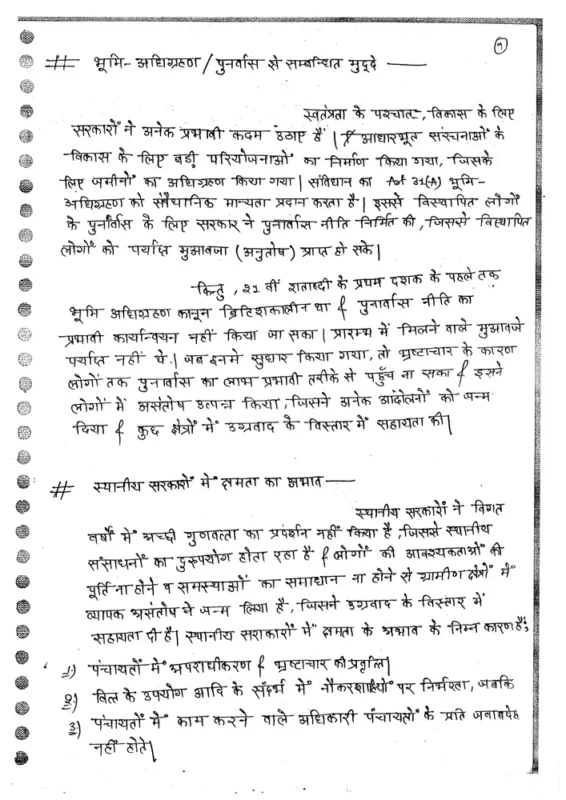 १
# भूमि-अधिग्रहण/पुनर्वास से सम्बन्धित मुद्दे —
स्वतंत्रता के पश्चात्, विकास के लिए
सरकारों ने अनेक प्रभावी कदम उठाए हैं। आधारभूत संरचनाओं के
विकास के लिए बड़ी परियोजनाओं का निर्माण किया गया, जिसके
लिए जमीनों का अधिग्रहण किया गया। संविधान का Art 31(A) भूमि-
अधिग्रहण को संवैधानिक मान्यता प्रदान करता है। इससे विस्थापित लोगों
के पुर्नावास के लिए सरकार ने पुनार्वास नीति निर्मित की, जिससे विस्थापित
लोगों को पर्याप्त मुआवजा (अनुतोष) प्राप्त हो सके।
किन्तु, 21 वीं शताब्दी के प्रथम दशक के पहले तक
भूमि अधिग्रहण कानून ब्रिटिशकालीन था & पुनार्वास नीति का
प्रभावी कार्यान्वयन नहीं किया जा सका। प्रारम्भ में मिलने वाले मुआवजे
पर्याप्त नहीं थे। जब इनमे सुधार किया गया, तो भ्रष्टाचार के कारण
लोगों तक पुनार्वास का लाभ प्रभावी तरीके से पहुँच ना सका & इसने
लोगों में असंतोष उत्पन्न किया, जिसने अनेक आंदोलनों को जन्म
दिया & कुछ क्षेत्रों में उग्रवाद के विस्तार में सहायता की।
# स्थानीय सरकारों में क्षमता का अभाव —
स्थानीय सरकारों ने विगत
वर्षों में अच्छी गुणवत्ता का प्रदर्शन नहीं किया है, जिससे स्थानीय
संसाधनों का दुरुपयोग होता रहा है & लोगों की आवश्यकताओं की
पूर्ति ना होने व समस्याओं का समाधान ना होने से ग्रामीण क्षेत्रों में
व्यापक असंतोष ने जन्म लिया है, जिसने उग्रवाद के विस्तार में
सहायता दी है। स्थानीय सराकारों में क्षमता के अभाव के निम्न कारण हैं;
1) पंचायतों में अपराधीकरण & भ्रष्टाचार की प्रवृत्ति।
2) वित्त के उपयोग आदि के संदर्भ में नौकरशाहियों पर निर्भरता, जबकि
3) पंचायतों में काम करने वाले अधिकारी पंचायतों के प्रति जवाबदेह
नहीं होते।